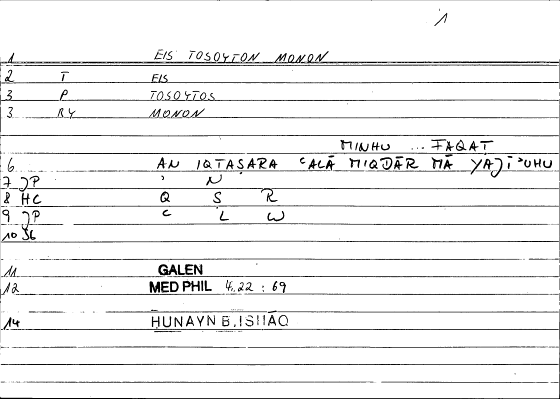 1
1 EIS TOSOYTON MONON
2 T EIS
3 P TOSOYTOS
3 RY MONON
MINHU ... FAQAT
6 AN IQTAṢARA ʿALĀ MIQDĀR MĀ YAJĪʾUHU
7 JP ʾ N
8 HC Q Ṣ R
9 JP ʿ L W
10 S6
11 GALEN
12 MED PHIL 4.22 : 69
14 HUNAYN B. ISHĀQ